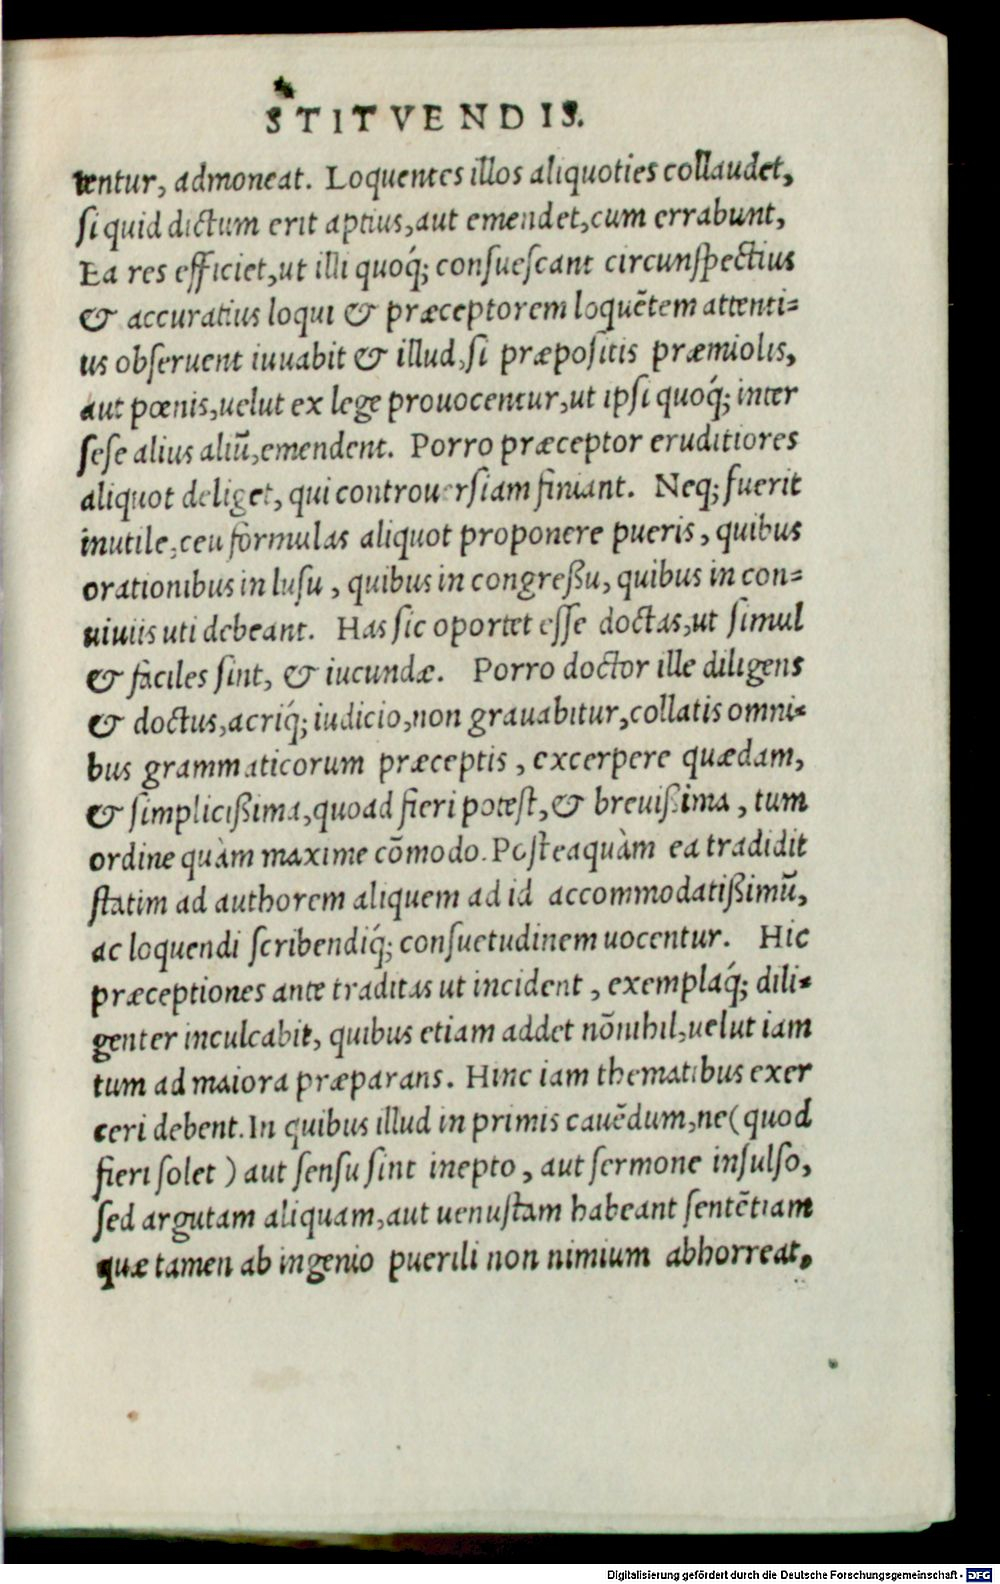 STITVENDIS.
tentur, admoneat. Loquentes illos aliquoties collaudet,
si quid dictum erit aptius, aut emendet, cum errabunt,
Ea res efficiet, ut illi quoq́; consuescant circunspectius
& accuratius loqui & præceptorem loquētem attenti=
us obseruent iuuabit & illud, si præpositis præmiolis,
aut pœnis, uelut ex lege prouocentur, ut ipsi quoq́; inter
sese alius aliū, emendent. Porro præceptor eruditiores
aliquot deliget, qui controuersiam finiant. Neq; fuerit
inutile, ceu formulas aliquot proponere pueris, quibus
orationibus in lusu, quibus in congreßu, quibus in con=
uiuiis uti debeant. Has sic oportet esse doctas, ut simul
& faciles sint, & iucundæ. Porro doctor ille diligens
& doctus, acriq́; iudicio, non grauabitur, collatis omni=
bus grammaticorum præceptis, excerpere quædam,
& simplicißima, quoad fieri potest, & breuißima, tum
ordine quàm maxime cōmodo. Posteaquàm ea tradidit
statim ad authorem aliquem ad id accommodatißimū,
ac loquendi scribendiq́; consuetudinem uocentur. Hic
præceptiones ante traditas ut incident, exemplaq́; dili=
genter inculcabit, quibus etiam addet nōnihil, uelut iam
tum ad maiora præparans. Hinc iam thematibus exer
ceri debent. In quibus illud in primis cauēdum, ne (quod
fieri solet) aut sensu sint inepto, aut sermone insulso,
sed argutam aliquam, aut uenustam habeant sentētiam
quæ tamen ab ingenio puerili non nimium abhorreat,
Digitalisierung gefördert durch die Deutsche Forschungsgemeinschaft - DFG